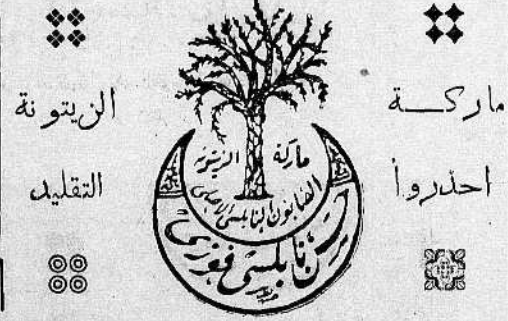 ماركة الزيتونة
احذروا التقليد
ماركة الزيتونه
الصابون النابلسي الاصلي
حسن نابلسي فوزي